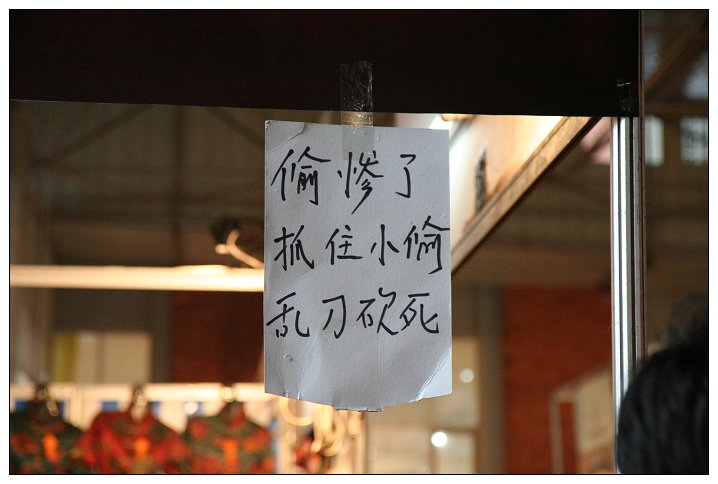 偷惨了
抓住小偷
乱刀砍死